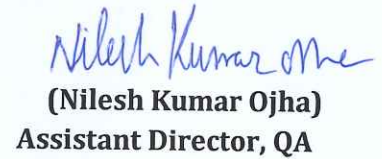 Nilesh Kumar Ojha
(Nilesh Kumar Ojha)
Assistant Director, QA